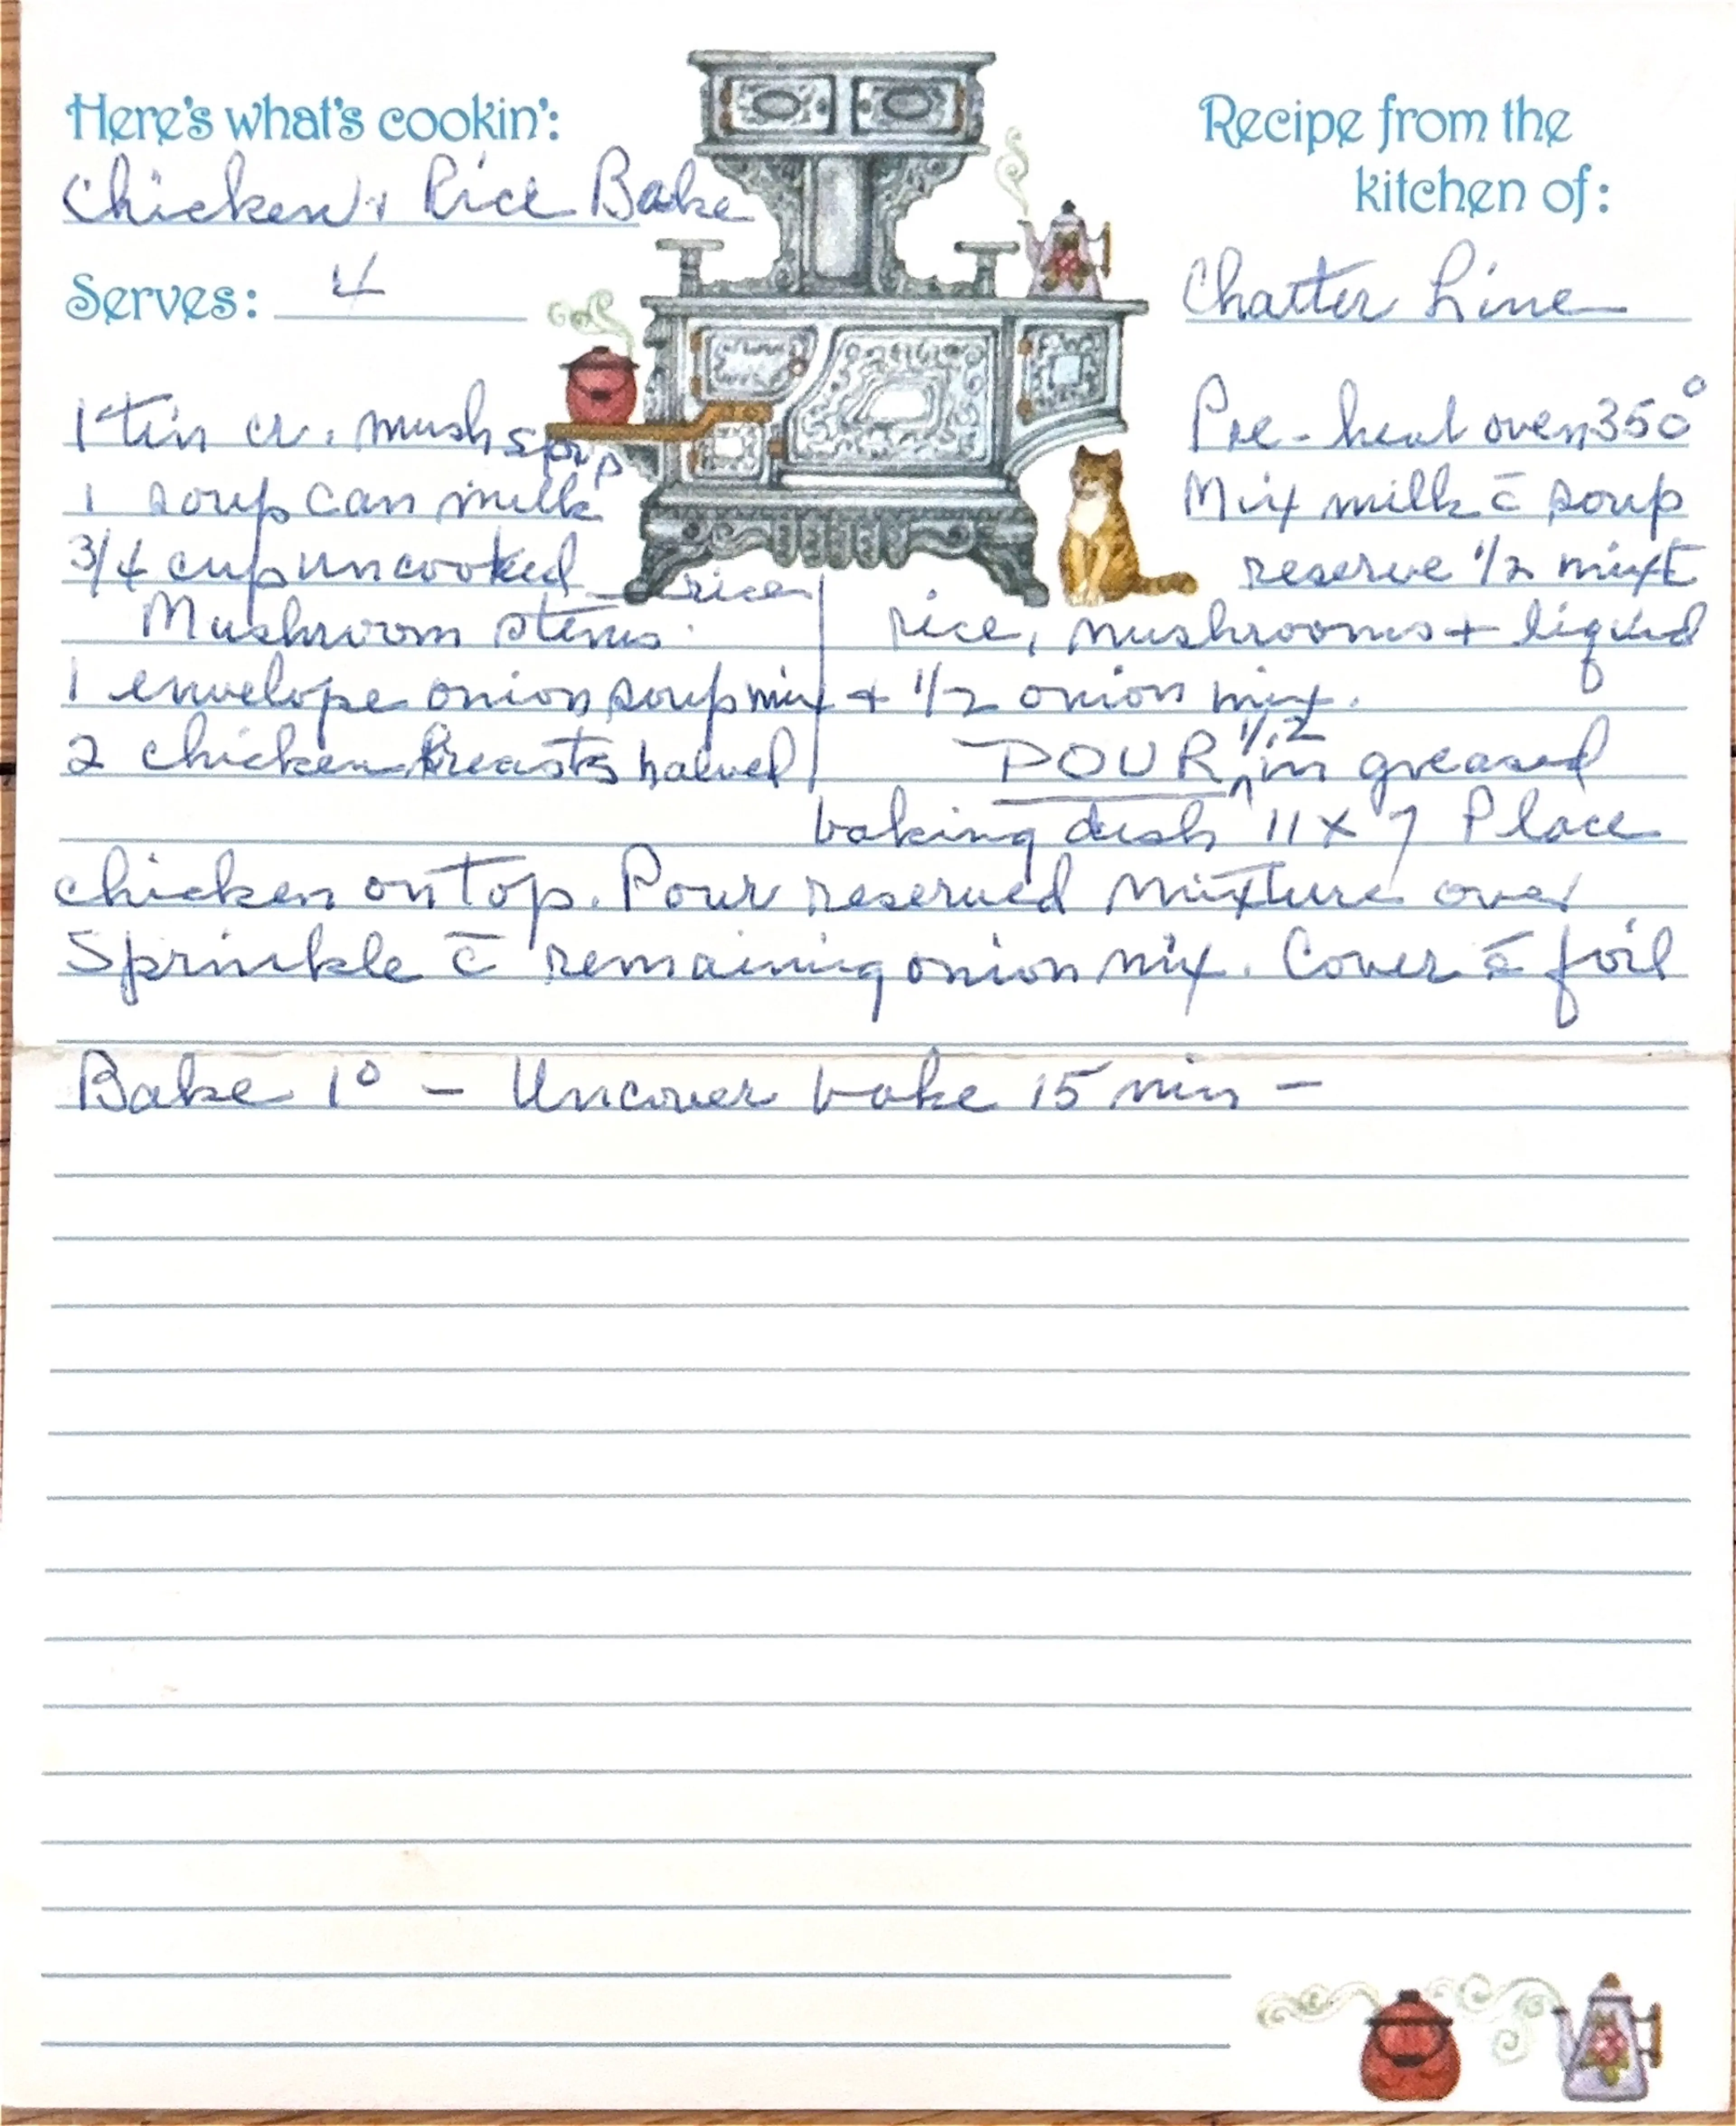 Here's what's cookin':
Chicken + Rice Bake
Serves: 4
Recipe from the
kitchen of:
Chatter Line
1 tin cr. mush soup
1 soup can milk
3/4 cup uncooked rice
Mushroom stems
1 envelope onion soup mix
2 chicken breasts halved
Pre-heat oven 350°
Mix milk c̄ soup
reserve 1/2 mixt
rice, mushrooms + liquid
+ 1/2 onion mix.
POUR 1/2 in greased
baking dish 11 x 7 Place
chicken on top. Pour reserved mixture over
Sprinkle c̄ remaining onion mix. Cover c̄ foil
Bake 1° – Uncover bake 15 min –